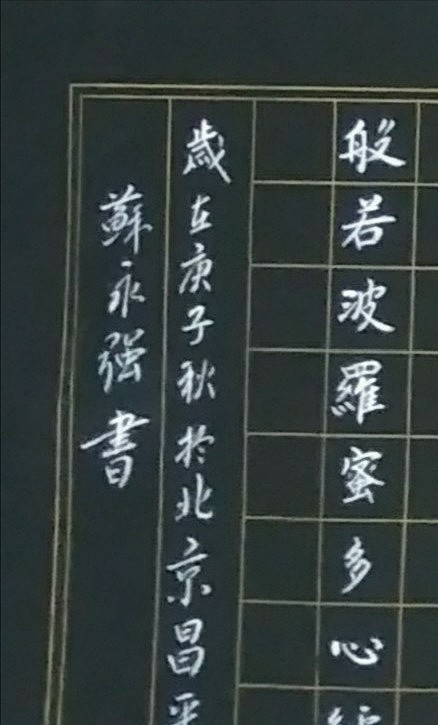 般若波羅蜜多心經
歲在庚子秋於北京昌平
蘇永强書